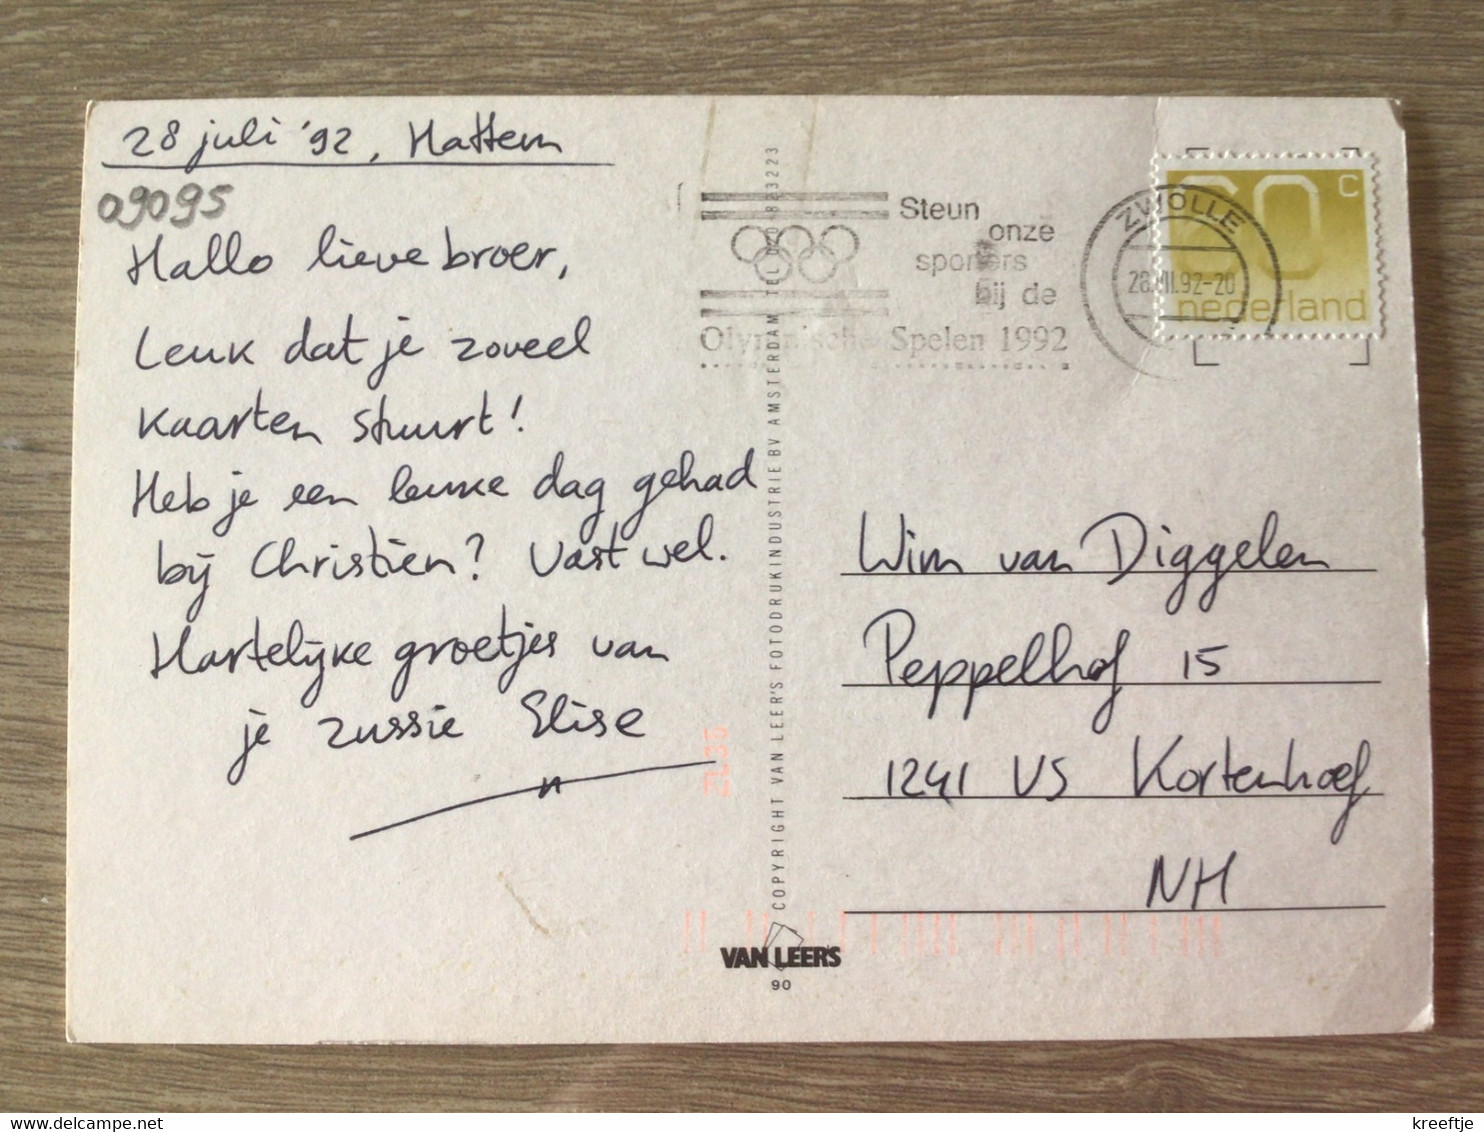 28 juli '92, Hattem
09095
Hallo lieve broer,
Leuk dat je zoveel
kaarten stuurt!
Heb je een leuke dag gehad
bij Christien? Vast wel.
Hartelijke groetjes van
je zussie Elise
Steun
onze
sporters
bij de
Olympische Spelen 1992
ZWOLLE
28.VII.92-20
60 c
nederland
COPYRIGHT VAN LEER'S FOTODRUKINDUSTRIE BV AMSTERDAM TEL
Wim van Diggelen
Peppelhof 15
1241 VS Kortenhoef
NH
VAN LEER'S
90
delcampe.net
kreeftje